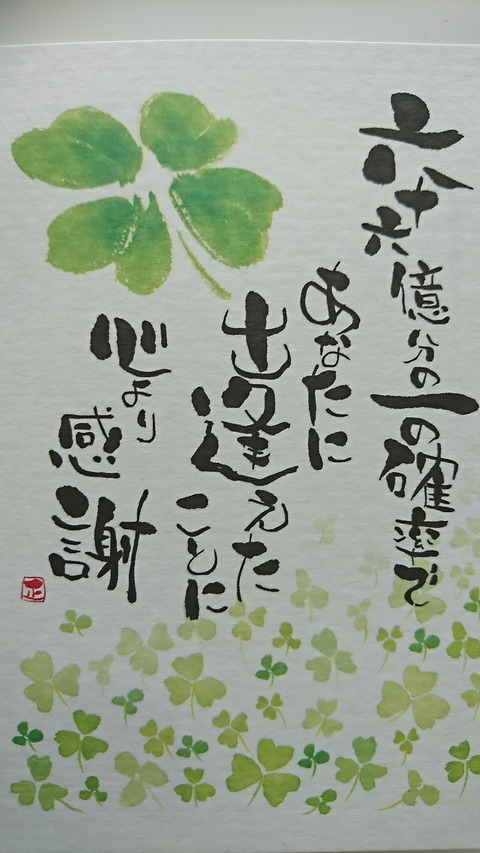 六十六億分の一の確率で
あなたに
出逢えた
ことに
心より
感謝
正